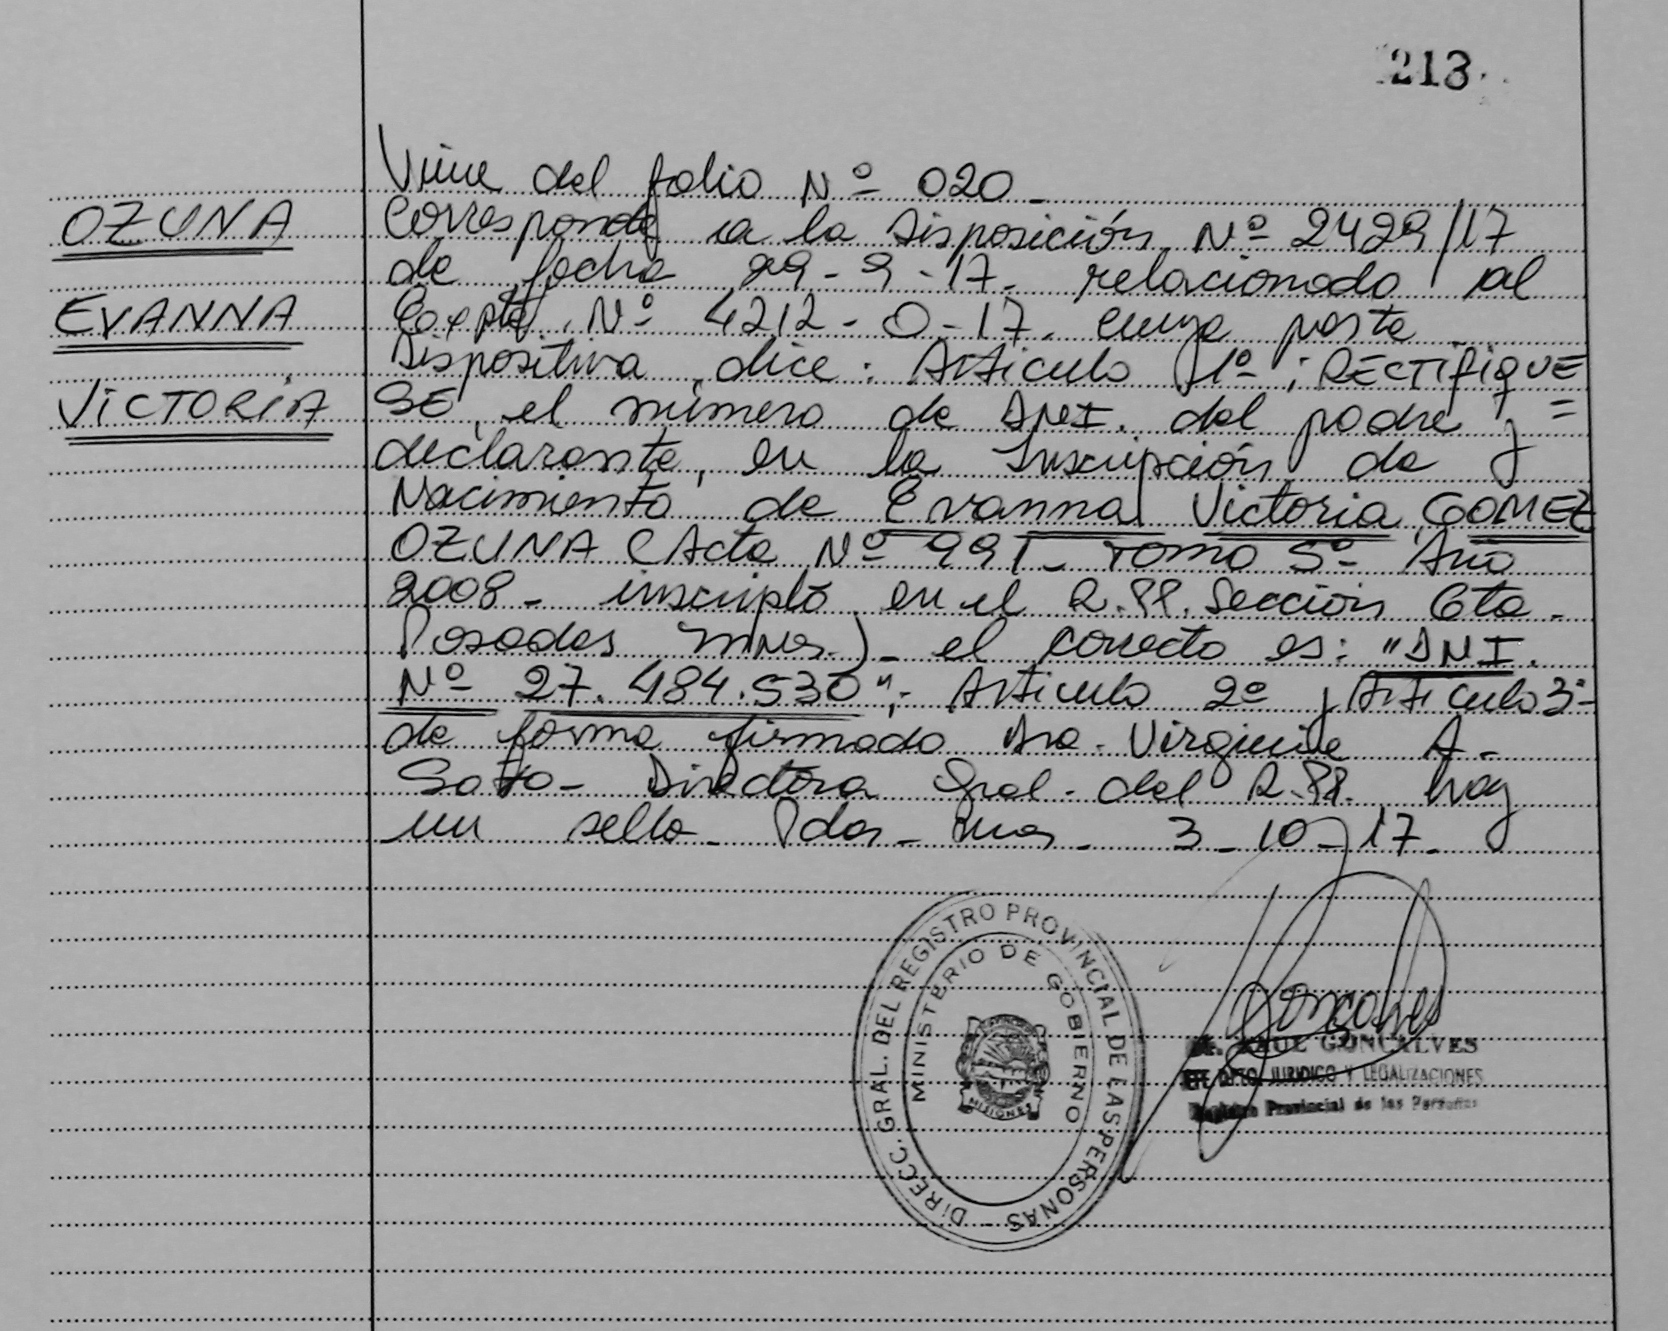 213
OZUNA
EVANNA
VICTORIA
Viene del folio Nº 020_
Corresponde a la Disposición Nº 2429/17
de fecha 29-9-17. relacionado al
Expte Nº 4212-O-17. cuya parte
Dispositiva, dice: Articulo 1º; RECTIFIQUE=
SE, el número de DNI. del padre y
declarante, en la Inscripción de
Nacimiento de Evanna Victoria GOMEZ
OZUNA (Acta Nº 991_ Tomo 5º Año
2008_ inscripto en el R.PP. Sección 6ta.
Posadas Mnes.)_ el correcto es: "DNI.
Nº 27.484.530"; Articulo 2º y Articulo 3º
de forma firmado Dra. Virginia A.
Directora Gral. del R.PP. hay
un sello_ Pdas_ Mnes_ 3_10_17_
DIRECC. GRAL. DEL REGISTRO PROVINCIAL DE LAS PERSONAS
MINISTERIO DE GOBIERNO
MISIONES
Gonçalves
GONCALVES
DPTO. JURIDICO Y LEGALIZACIONES
Registro Provincial de las Personas